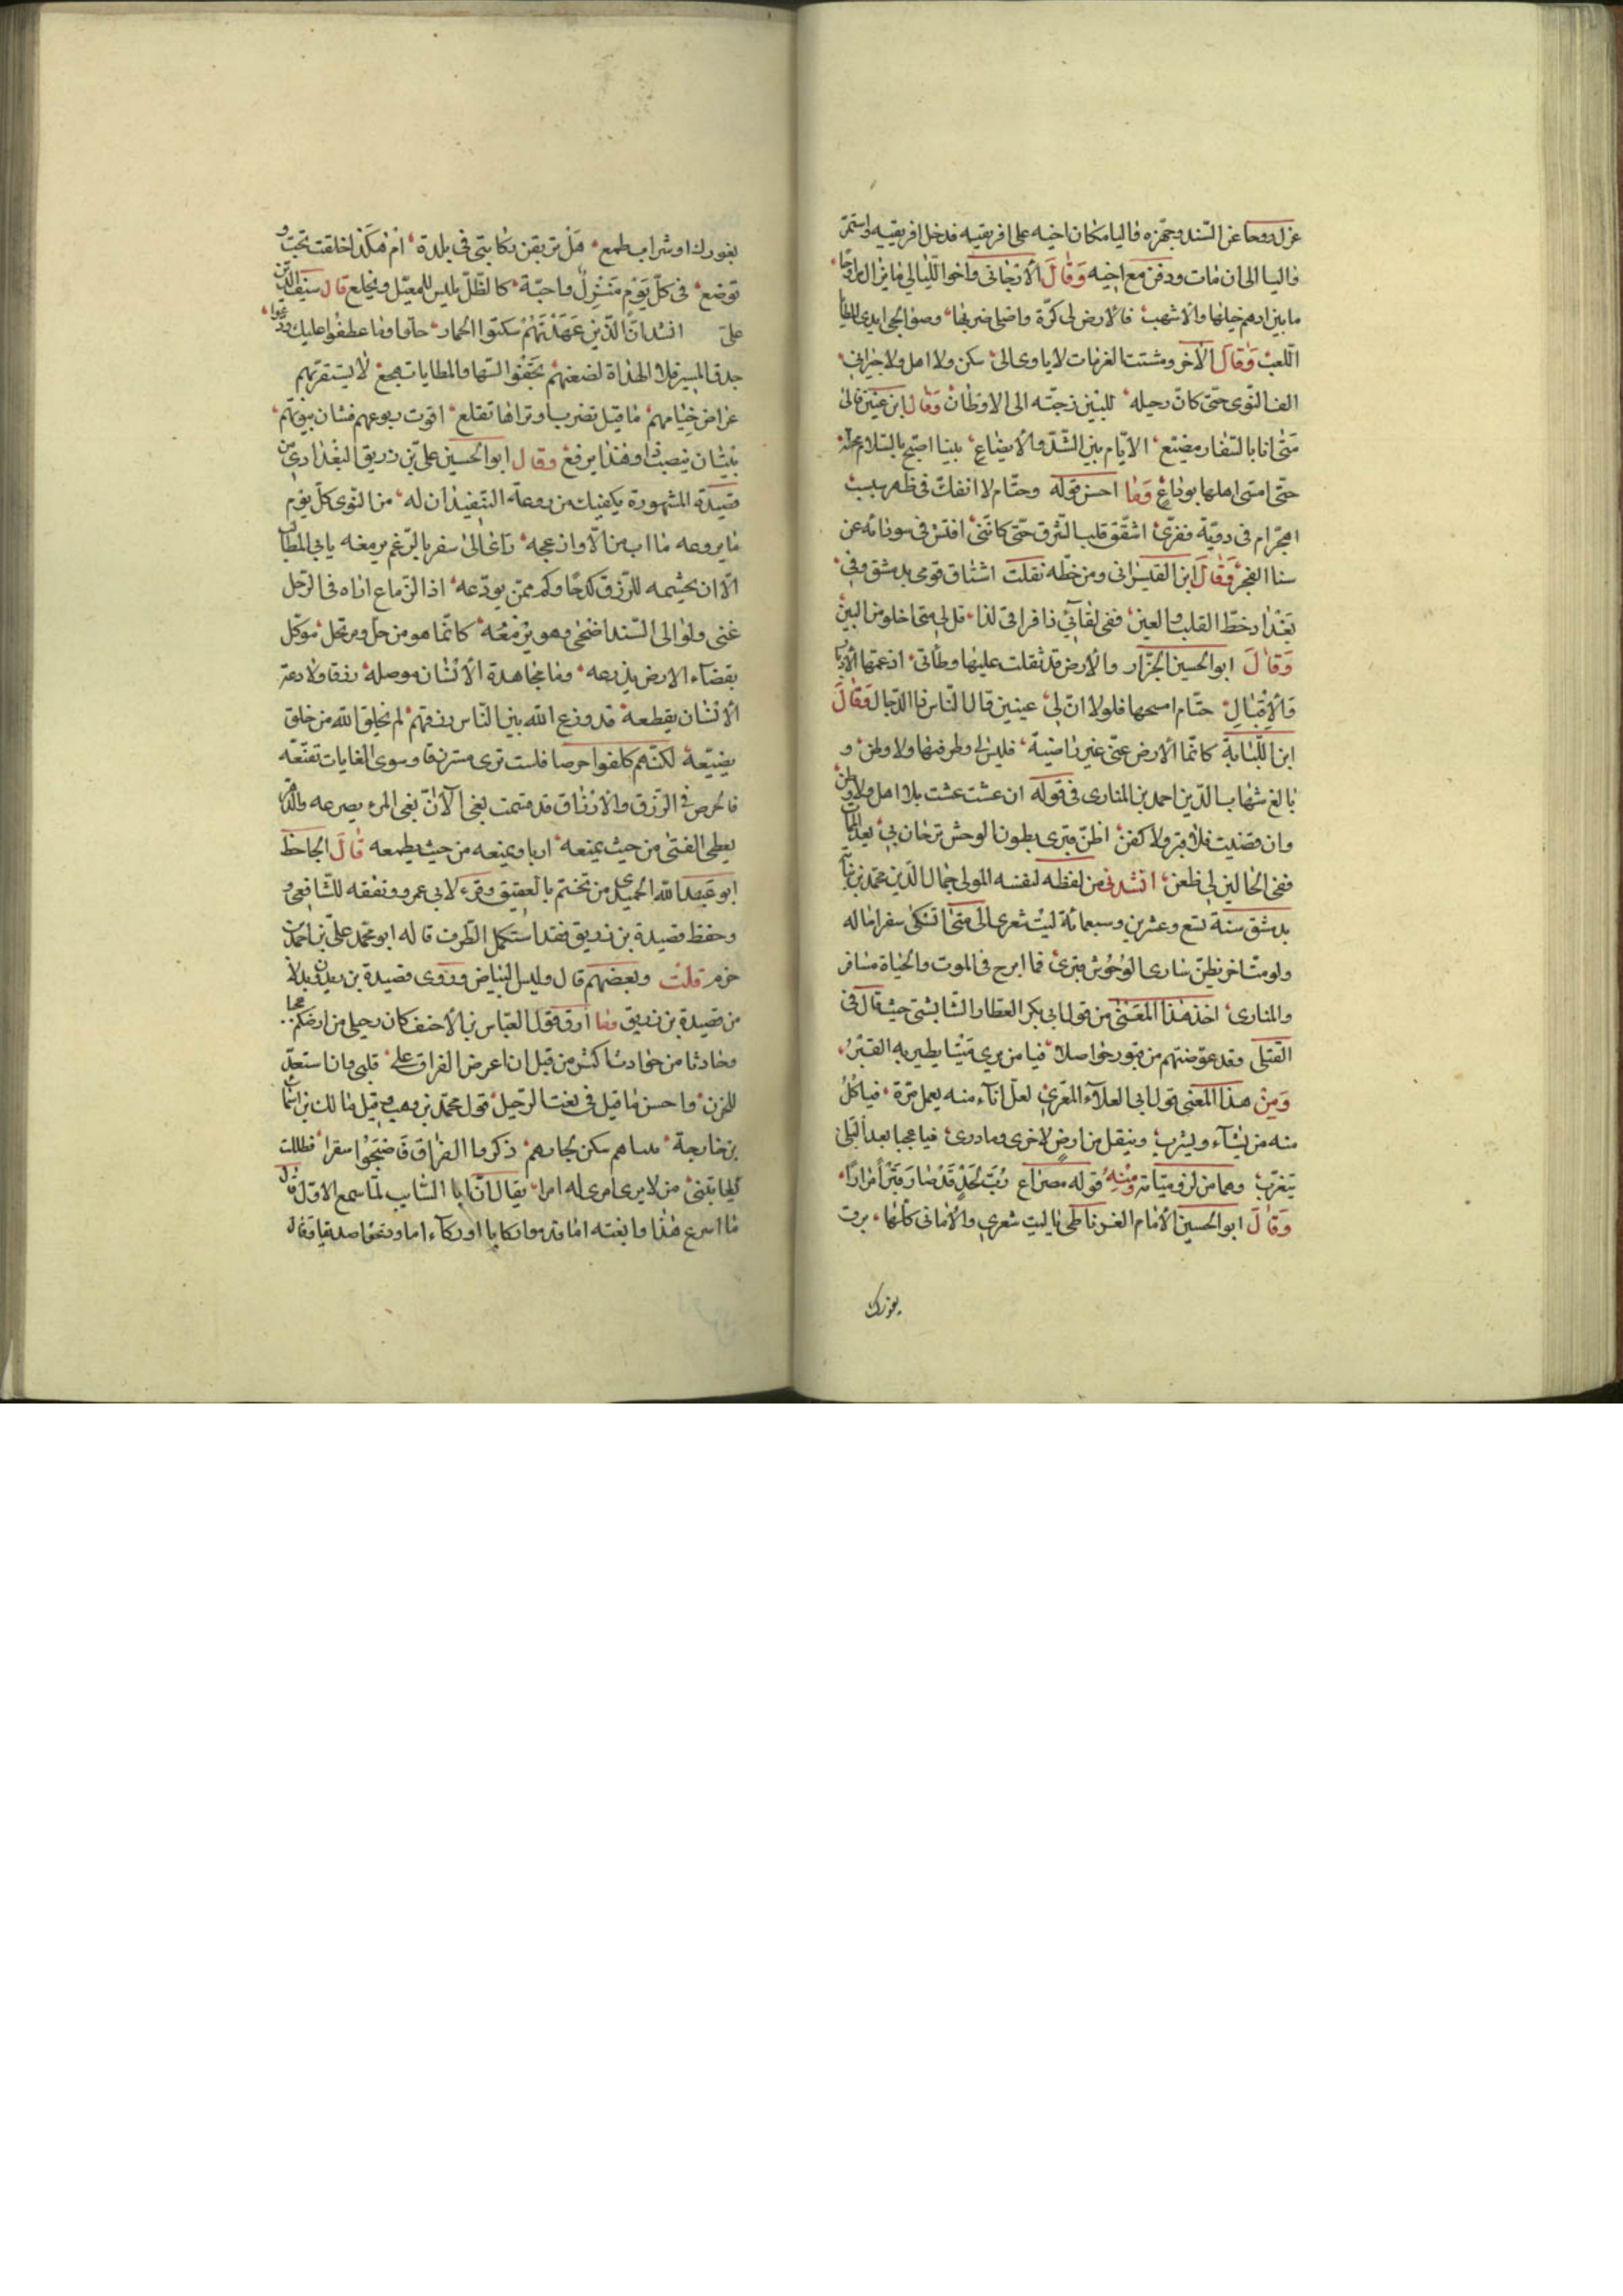 عزل روحا عن السند وجهزه واليا مكان اخيه على افريقيه فدخل افريقيه واستمر
واليا الى ان مات ودفن مع اخيه وقال الارجاني واخوا الليالي ما يزال مراوحا
ما بين ادهم خيلها والاشهب فالارض لي كرة واصل ضربها وصوالجي ايدي المطايا
اللعب وقال الآخر ومشتت الغربات لا ياوى الى سكن ولا اهل ولا جيران
الف النوى حتى كان رحيله للبين رجته الى الاوطان وقال ابن عنين
متى انا بالسفار مضيع الايام بين الشد والايضاع بينا اصبح بالسلام محلة
حتى امسى اهلها بوداع وما احسن قوله وحتام لا انفك في ظهر سبسب
اهجر ام في دوية قفرى اشقق قلب الشرق حتى كانني افتش في سودائه عن
سنا الفجر وقال ابن القيسراني ومن خطه نقلت اشتاق قومي بدمشق وفي
بغداد خط القلب والعين ففي لقائي ذا فراقي لذا قل لي متى اخلو من البين
وقال ابو الحسين الجزار والارض قد ثقلت عليها وطأتي
والاقبال حتام امسحها فلولا ان لي عينين قال الناس ذا الدجال وقال
ابن اللبانة كانما الارض عني غير راضية فليس لي وطر فيها ولا وطن و
بالغ شهاب الدين احمد بن المنارى في قوله ان عشت عشت بلا اهل ولا وطن
وان قضيت فلا قبر ولا كفن اظن قبرى بطون الوحش ترحل بي بعد الممات
ففي الحالين لي ظعن انشدني من لفظه لنفسه المولى جمال الدين محمد بن نباتة
بدمشق سنة تسع وعشرين وسبعمائة ليت شعرى الى متى اتشكى سفرا ماله
ولو متّ اخر نظن سارى الوحوش قبرى فما ابرح في الموت والحياة مسافر
والمنارى اخذ هذا المعنى من قول ابي بكر العطار الشابشتى حيث قال في
القتلى وقد عوضتهم من قبور حواصلا فيا من يرى ميتا يطير به القبر
ومن هذا المعنى قول ابي العلاء المعري لعل اناء منه يعمل مرة فياكل
منه من يشاء ويشرب وينقل من ارض لاخرى وما درى فيا عجبا بعد البلى
يتغرب وهما من لزومياته ومنه قوله مصراع رب لحد قد صار قبرا مرارا
وقال ابو الحسين الامام الغرناطي يا ليت شعرى والاماني كلها برق
يغورك
يغورك او شراب يطمع هل تربقن ركابتي في بلدة ام هكذا خلقت تخب و
توضع في كل يوم منزل واحبة كالظل يلبس للمعيل ويخلع قال سيف الدين
على انشد ان الذين عهدتهم سكنوا الحمار حلوا وما عطفوا عليك ودعوا
جد المسير فلا الهداة لضعنهم تخفوا السها والمطايات هجع لا يستقر بهم
عراض خيامهم ما قيل تضرب او تراها تقلع اقوت ربوعهم فشان بيوتهم
بيتان ينصب ذا وهذا يرفع وقال ابو الحسين علي بن زريق البغدادي من
قصيدته المشهورة يكفيك من روعة التفنيد ان له من النوى كل يوم
ما يروعه ما اب من الا وازعجه راى الى سفر بالرغم يزمعه يابى المطالب
الا ان يجشمه للرزق كدحا وكم ممن يودعه اذا الزماع اراه في الرحل
غنى ولو الى السند اضحى وهو يزمعه كانما هو من حل ومرتحل موكل
بقضاء الارض يذرعه وما مجاهدة الانسان موصلة رزقا ولا دعة
الانسان يقطعه قد وزع الله بين الناس رزقهم لم يخلق الله من خلق
يضيعه لكنهم كلفوا حرصا فلست ترى مسترزقا وسوى الغايات تقنعه
فالحرص في الرزق والارزاق قد قسمت بغى الا ان بغى المرء يصرعه والدهر
يعطى الفتى من حيث يمنعه اربا ويمنعه من حيث يطمعه قال الحافظ
ابو عبد الله الحميدى من تختم بالعقيق وقرء لابي عمرو وتفقه للشافعي و
وحفظ قصيدة بن زريق فقد استكمل الظرف قاله ابو محمد علي بن احمد بن
حزم قلت وبعضهم قال ولبس البياض وروى قصيدة بن زيدون بدلا
من قصيدة بن زريق وما ارق قول العباس بن الاحنف كان رحيلي من ارضكم عجبا
وحادثا من حوادث الزمن من قبل ان اعرض الفراق على قلبي وان استعد
للحزن واحسن ما قيل في بغت الرحيل قول محمد بن وهب وقيل مالك بن اسماء
بن خارجة بيناهم سكن بجارهم ذكروا الفراق فاصبحوا سفرا فظللت
من لا يرى امرى له امرا يقال ان ابا السايب لما سمع الاول قال
ما اسرع هذا وابغته اما قدموا ركابا او ركاء اما ودعوا صديقا وقال